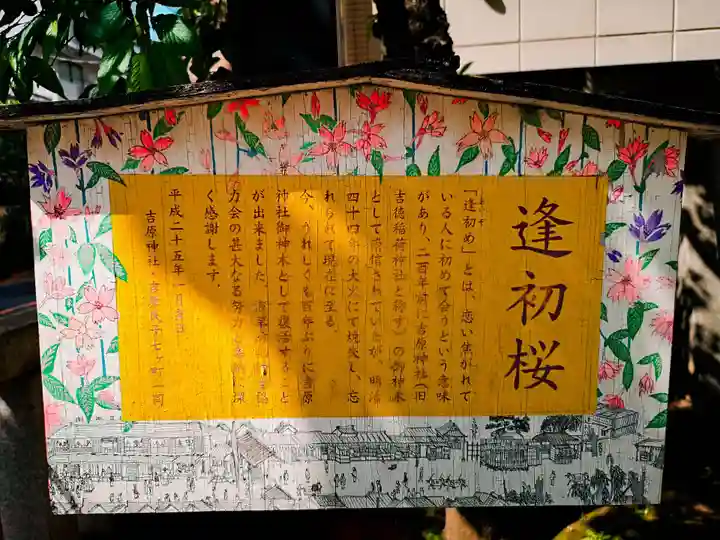 逢初桜
あいぞめ
「逢初め」とは、恋い焦がれて
いる人に初めて会うという意味
があり、二百年前に吉原神社(旧
吉徳稲荷神社と称す)の御神木
として崇信されていたが、明治
四十四年の大火にて焼失し、忘
れられて現在に至る。
今、うれしくも百年ぶりに吉原
神社御神木として復活すること
が出来ました。
力会の甚大なる努力と
く感謝します。
平成二十五年一月吉日
吉原神社・吉原氏子七ヶ町一同